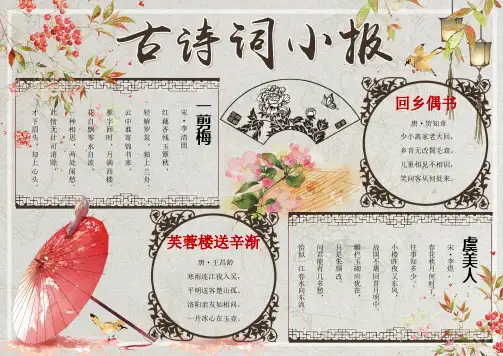 古诗词小报
一剪梅
宋·李清照
红藕香残玉簟秋
轻解罗裳,独上兰舟。
云中谁寄锦书来
雁字回时,月满西楼
花自飘零水自流
一种相思,两处闲愁
此情无计可消除
才下眉头,却上心头。
回乡偶书
唐·贺知章
少小离家老大回,
乡音无改鬓毛衰。
儿童相见不相识,
笑问客从何处来。
芙蓉楼送辛渐
唐·王昌龄
寒雨连江夜入吴,
平明送客楚山孤。
洛阳亲友如相问,
一片冰心在玉壶。
虞美人
宋·李煜
春花秋月何时了
往事知多少。
小楼昨夜又东风,
故国不堪回首月明中
雕栏玉砌应犹在,
只是朱颜改。
问君能有几多愁
恰似一江春水向东流